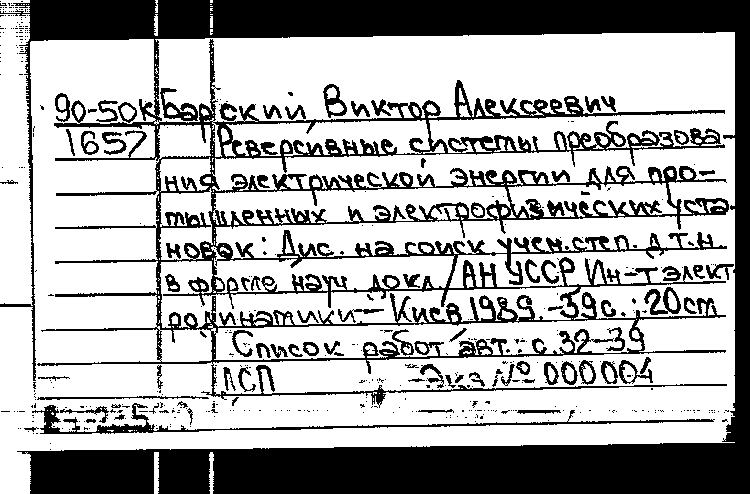 90-50к Барский, Виктор Алексеевич
1657 Реверсивные системы преобразова-
ния электрической энергии для про-
мышленных и электрофизических уста-
новок: Дис. на соиск. учен. степ. д.т.н.
в форме науч. докл./АН УССР Ин-т элект-
родинамики.- Киев 1989.-39с.; 20см
Список работ авт.: с.32-39
ДСП Экз № 000004